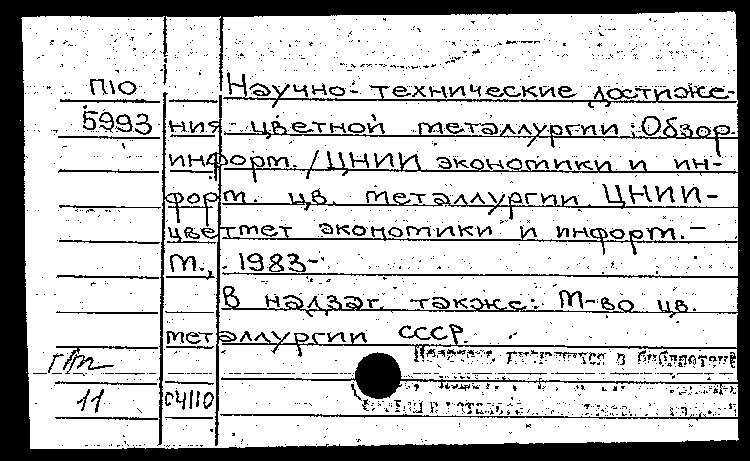 П10 Научно-технические достиже-
5993 ния цветной металлургии: Обзор.
информ. / ЦНИИ экономики и ин-
форм. цв. металлургии. ЦНИИ-
цветмет экономики и информ. –
М., 1983-
В надзаг. также: М-во цв.
металлургии СССР.
в библиотеке
11 04110